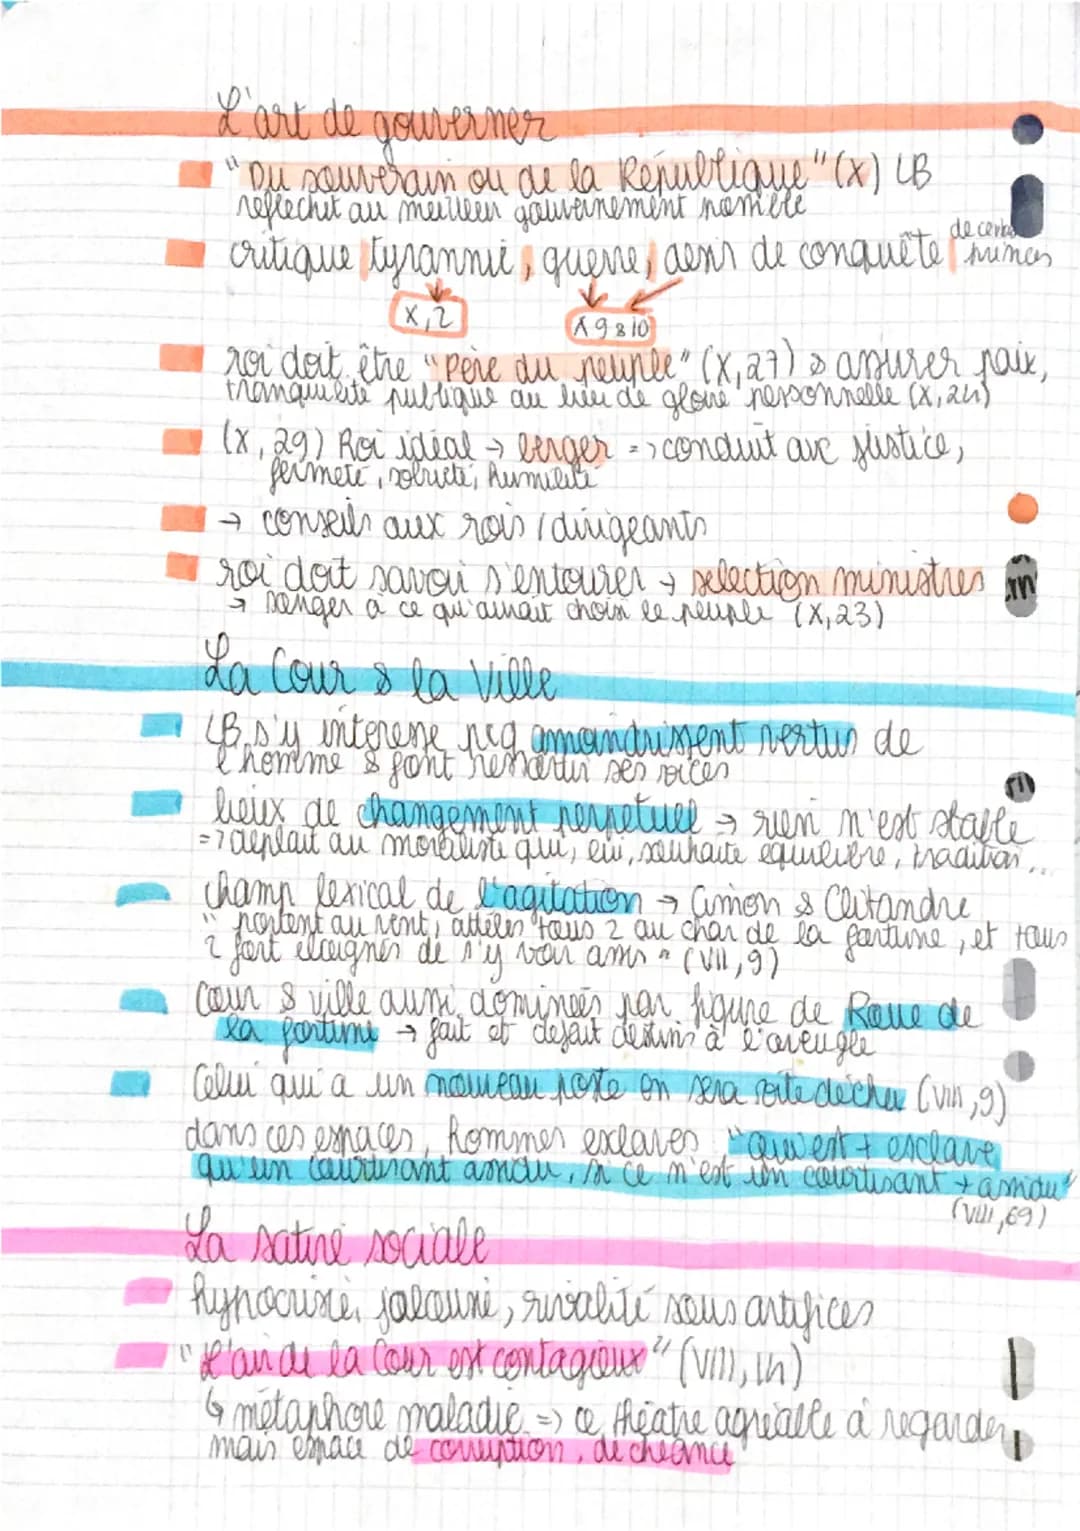 L'art de gouverner
"Du souverain ou de la République" (X) LB
réfléchit au meilleur gouvernement possible
critique tyrannie, guerre, désir de conquête de certains princes
X,2
X 9 & 10
roi doit être "Père du peuple" (X,27) & assurer paix,
tranquilité publique au lieu de gloire personnelle (X,24)
(X,29) Roi idéal → berger => conduit avc justice,
fermeté, sobriété, humilité
→ conseils aux rois / dirigeants
roi doit savoir s'entourer → sélection ministres
→ songer à ce qu'aurait choisi le peuple (X,23)
La Cour & la Ville
LB s'y interesse pcq amoindrissent vertus de
l'homme & font ressortir ses vices
lieux de changement perpétuel → rien n'est stable
=> déplait au moraliste qui, lui, souhaite équilibre, tradition...
champ lexical de l'agitation → Cimon & Clitandre
" portent au vent, attelés tous 2 au char de la fortune, et tous
2 fort éloignés de s'y voir assis " (VII,9)
Cour & ville aussi dominées par figure de Roue de
la fortune → fait et défait destins à l'aveugle
Celui qui a un nouveau poste en sera vite déchu (VIII,9)
dans ces espaces, hommes esclaves "Qui est + esclave
qu'un courtisant assidu, si ce n'est un courtisant + assidu"
(VIII,69)
La satire sociale
hypocrisie, jalousie, rivalité sous artifices
"L'air de la Cour est contagieux" (VIII,14)
↳ métaphore maladie => ce théâtre agréable à regarder,
mais espace de corruption, de chéance